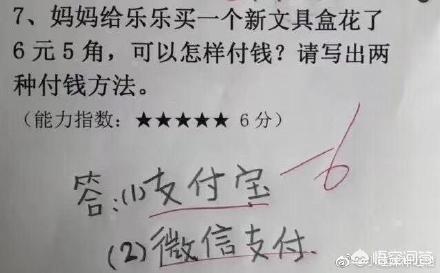 7、妈妈给乐乐买一个新文具盒花了
6元5角，可以怎样付钱？请写出两
种付钱方法。
（能力指数：★★★★★ 6分）
答：(1)支付宝
-6
(2)微信支付
悟空问答